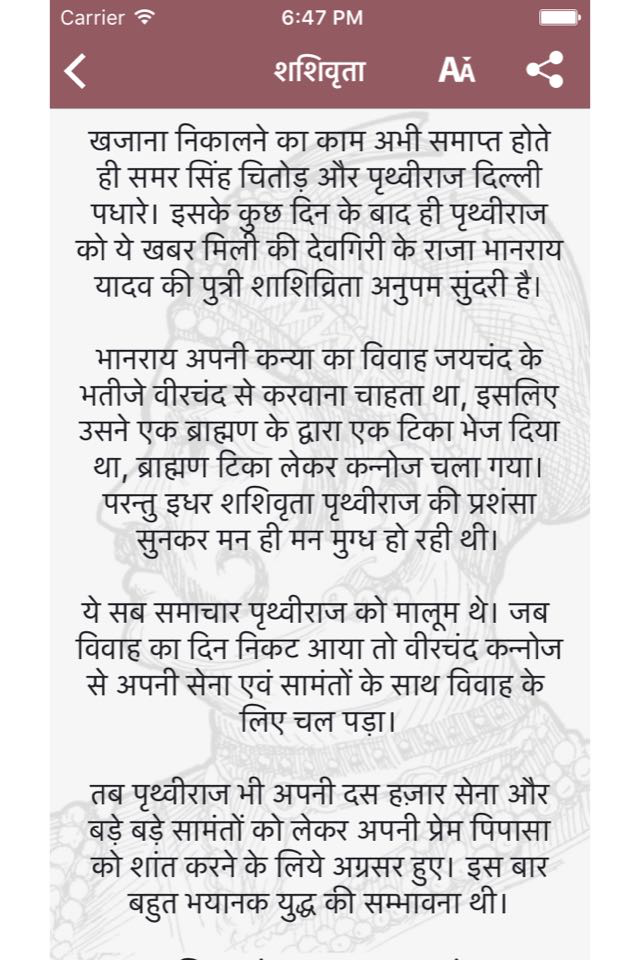 Carrier 6:47 PM
शशिवृता AA
खजाना निकालने का काम अभी समाप्त होते
ही समर सिंह चितोड़ और पृथ्वीराज दिल्ली
पधारे। इसके कुछ दिन के बाद ही पृथ्वीराज
को ये खबर मिली की देवगिरी के राजा भानराय
यादव की पुत्री शाशिव्रिता अनुपम सुंदरी है।
भानराय अपनी कन्या का विवाह जयचंद के
भतीजे वीरचंद से करवाना चाहता था, इसलिए
उसने एक ब्राह्मण के द्वारा एक टिका भेज दिया
था, ब्राह्मण टिका लेकर कन्नोज चला गया।
परन्तु इधर शशिवृता पृथ्वीराज की प्रशंसा
सुनकर मन ही मन मुग्ध हो रही थी।
ये सब समाचार पृथ्वीराज को मालूम थे। जब
विवाह का दिन निकट आया तो वीरचंद कन्नोज
से अपनी सेना एवं सामंतों के साथ विवाह के
लिए चल पड़ा।
तब पृथ्वीराज भी अपनी दस हज़ार सेना और
बड़े बड़े सामंतों को लेकर अपनी प्रेम पिपासा
को शांत करने के लिये अग्रसर हुए। इस बार
बहुत भयानक युद्ध की सम्भावना थी।